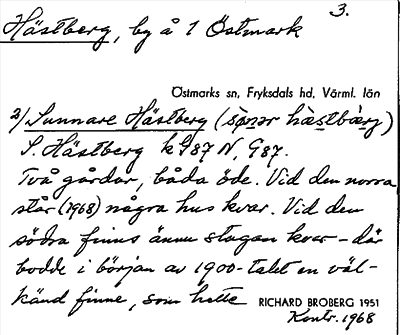 3.
Hästberg, by å 1 Östmark
Östmarks sn, Fryksdals hd, Värml. län
2/ Sunnare Hästberg (sø̜nər hæ̀stbærj)
S. Hästberg k 987 N, 987.
Två gårdar, båda öde. Vid den norra
står (1968) några hus kvar. Vid den
södra finns ännu stugan kvar – där
bodde i början av 1900-talet en väl-
känd finne, som hette
RICHARD BROBERG 1951
Kontr. 1968